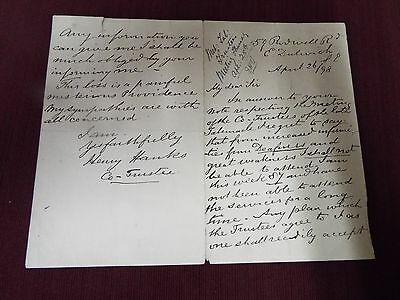 59 Rodwell Rd
E Dulwich
April 26/98
My dear Sir
In answer to your
note respecting the meeting
of the Co-Trustees of the
I regret to say
that from increased infirmi
ties from Deafness and
great weakness I shall not
be able to attend I am
this week 87 and have
not been able to attend
the services for a long
time - Any plan which
the Trustees agree to I as
one shall readily accept
Any information you
can give me I shall be
much obliged by your
informing me -
This loss is a painful
mysterious Providence
My sympathies are with
all concerned
I am
Yrs faithfully
Henry Hanks
Co-Trustee